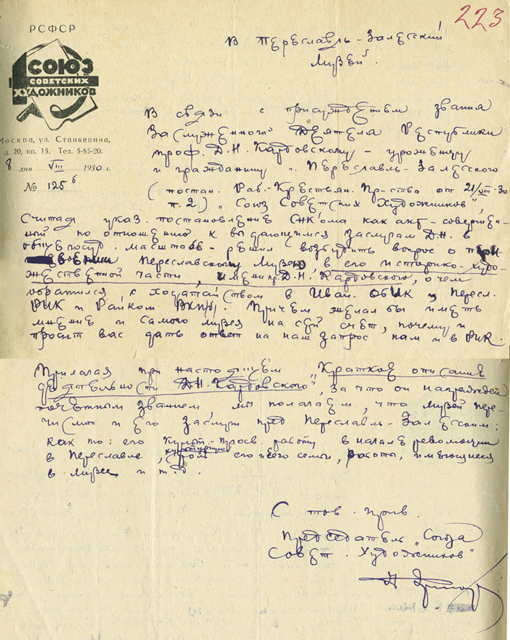 223
РСФСР
СОЮЗ
СОВЕТСКИХ
ХУДОЖНИКОВ
Москва, ул. Станкевича,
д. 20, кв. 15. Тел. 5-83-20.
8 дня VIII 1930 г.
№ 125 б
В Переславль-Залесский
Музей.
В связи с присуждением звания
Заслуженного Деятеля Республики
проф. Д.Н. Кардовскому – уроженцу
и гражданину г. Переславль-Залесского
(постан. Раб-Крестьян. Пр-ства от 21/VII-30
п. 2.) „Союз Советских Художников",
Считая указ. постановление СНКома как акт совершен-
ный по отношению к выдающимся заслугам Д.Н. в
масштабе – решил возбудить вопрос о при
Переславскому Музею в его историко-худо-
жественной части, имени Д.Н. Кардовского, о чем
обратился с ходатайством в Иван. ОБИК и Пересл.
РИК и Райком ВКПб. Причем желал бы иметь
мнение и самого музея на сей счет, почему и
просит вас дать ответ на наш запрос нам и в РИК.
Прилагая при настоящем „Краткое описание
деятельности Д.Н. Кардовского", за что он награжден
почетным званием мы полагаем, что музей пере-
числит и его заслуги пред Переславль-Залесским:
как по: его культ.-просв. работу в начале революции
в Переславле, его и его семьи, работы, имеющиеся
в музее и т.д.
С тов. прив.
Председатель „Союза
Совет. Художников"